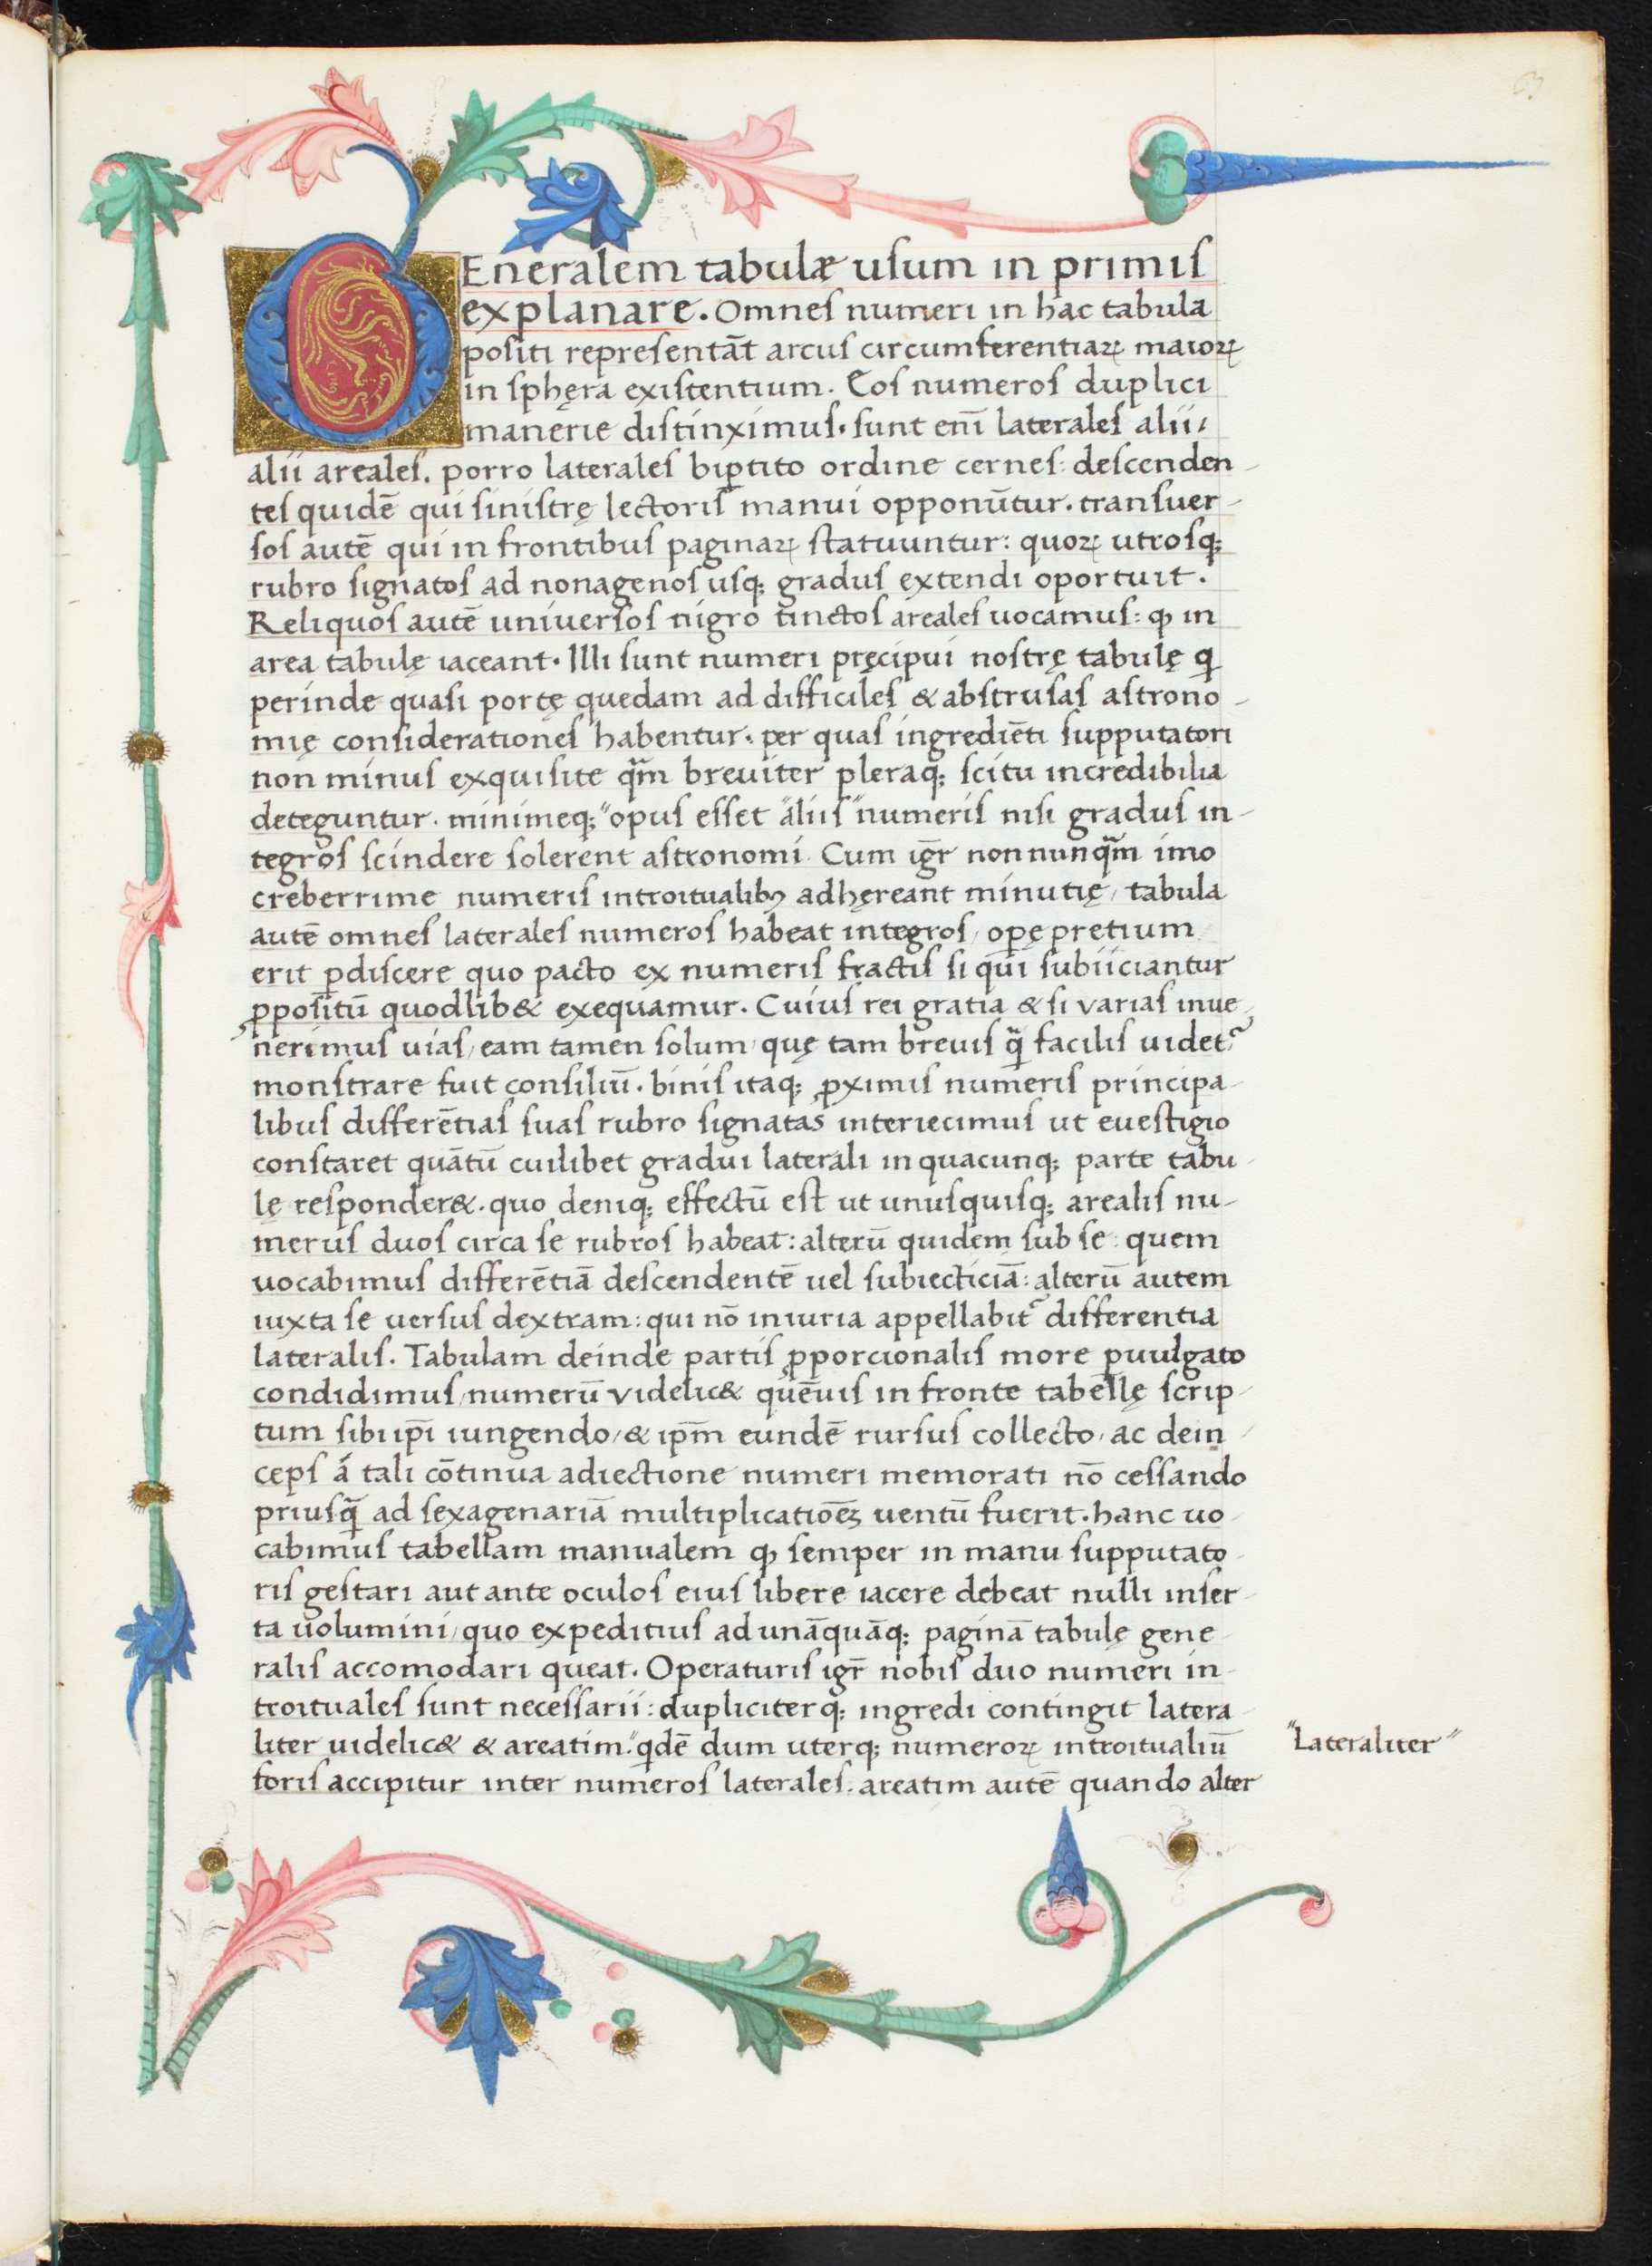 GEneralem tabulæ usum in primis
explanare. Omnes numeri in hac tabula
positi representāt arcus circumferentiaꝝ maioꝝ
in sphęra existentium. Eos numeros duplici
manerie distinximus. sunt enī laterales alii,
alii areales. porro laterales biꝑtito ordine cernes: descenden-
tes quidē qui sinistrę lectoris manui opponūtur. transuer-
sos autē qui in frontibus paginaꝝ statuuntur: quoꝝ utrosqꝫ
rubro signatos ad nonagenos usqꝫ gradus extendi oportuit.
Reliquos autē universos nigro tinctos areales uocamus: ꝙ in
area tabulę iaceant. Illi sunt numeri pręcipui nostrę tabulę ꝗ
perinde quasi portę quedam ad difficiles & abstrusas astrono-
mię considerationes habentur. per quas ingrediēti supputatori
non minus exquisite qᷓm breuiter pleraqꝫ scitu incredibilia
deteguntur. minimeqꝫ "opus esset "aliis" numeris nisi gradus in-
tegros scindere solerent astronomi. Cum igr̄ non nunqᷓm imo
creberrime numeris introitualibꝯ adhęreant minutię, tabula
autē omnes laterales numeros habeat integros, operę pretium
erit ꝑdiscere quo pacto ex numeris fractis si qui subiiciantur
ꝓpositū quodlib& exequamur. Cuius rei gratia & si varias inue-
nerimus uias, eam tamen solum, quę tam breuis qᷓ facilis uidet᷑
monstrare fuit consiliū. binis itaqꝫ ꝓximis numeris principa-
libus differētias suas rubro signatas interiecimus ut euestigio
constaret quātū cuilibet gradui laterali in quacunqꝫ parte tabu-
lę responder&. quo deniqꝫ effectū est ut unusquisqꝫ arealis nu-
merus duos circa se rubros habeat: alterū quidem sub se: quem
uocabimus differētiā descendentē uel subiecticiā: alterū autem
iuxta se uersus dextram: qui nō iniuria appellabit᷑ differentia
lateralis. Tabulam deinde partis ꝓporcionalis more ꝑuulgato
condidimus, numerū videlic& quēuis in fronte tabellę scrip-
tum sibi ip̄i iungendo, & ip̄m eundē rursus collecto, ac dein-
ceps á tali cōtinua adiectione numeri memorati nō cessando
priusqᷓ ad sexagenariā multiplicatiōeꝫ uentū fuerit. hanc uo-
cabimus tabellam manualem ꝙ semper in manu supputato-
ris gestari aut ante oculos eius libere iacere debeat nulli inser-
ta uolumini, quo expeditius ad unāquāqꝫ paginā tabulę gene-
ralis accomodari queat. Operaturis igr̄ nobis duo numeri in-
troituales sunt necessarii: dupliciterqꝫ ingredi contingit latera-
liter uidelic& & areatim." ꝗdē dum uterqꝫ numeroꝝ introitualiū
foris accipitur inter numeros laterales. areatim autē quando alter
"Lateraliter"